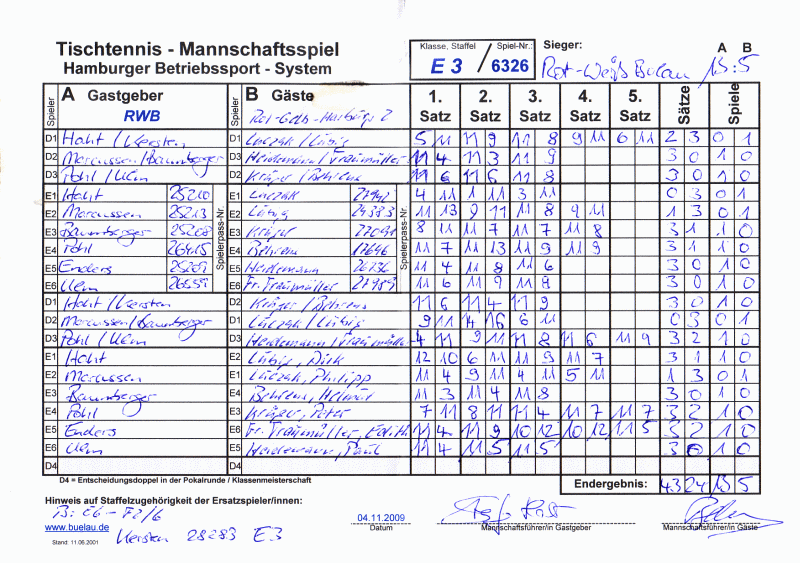 Tischtennis - Mannschaftsspiel
Hamburger Betriebssport - System
Klasse, Staffel Spiel-Nr.:
E 3 / 6326
Sieger: A B
Rot-Weiß Bülau 13:5
Spieler A Gastgeber Spieler B Gäste 1. 2. 3. 4. 5. Sätze Spiele
RWB Rot-Gelb-Harburg 2 Satz Satz Satz Satz Satz
D1 Haht / Kersten D1 Luczak / Lübig 5 11 11 9 11 8 9 11 6 11 2 3 0 1
D2 Marcussen / Baumberger D3 Heidemann / Traumüller 11 4 11 3 11 9 3 0 1 0
D3 Pohl / Ulm D2 Krüger / Behrens 11 6 11 6 11 8 3 0 1 0
E1 Haht 25210 E1 Luczak 4 11 1 11 3 11 0 3 0 1
E2 Marcussen 25213 E2 Lübig 11 13 9 11 11 8 9 11 1 3 0 1
E3 Baumberger 25208 E3 Krüger 27091 8 11 11 7 11 7 11 8 3 1 1 0
E4 Pohl 26415 E4 Behrens 17646 11 7 11 13 11 9 11 9 3 1 1 0
E5 Enders 25209 E5 Heidemann 26736 11 4 11 8 11 6 3 0 1 0
E6 Ulm 26559 E6 Fr. Traumüller 27989 11 6 11 9 11 8 3 0 1 0
Spielerpass-Nr. Spielerpass-Nr.
D1 Haht / Kersten D2 Krüger / Behrens 11 6 11 4 11 9 3 0 1 0
D2 Marcussen / Baumberger D1 Luczak / Lübig 9 11 14 16 6 11 0 3 0 1
D3 Pohl / Ulm D3 Heidemann / Traumüller 4 11 9 11 11 8 11 6 11 9 3 2 1 0
E1 Haht E2 Lübig, Dirk 12 10 6 11 11 9 11 7 3 1 1 0
E2 Marcussen E1 Luczak, Philipp 11 4 9 11 4 11 5 11 1 3 0 1
E3 Baumberger E4 Behrens, Helmut 11 3 11 4 11 8 3 0 1 0
E4 Pohl E3 Krüger, Peter 7 11 8 11 11 4 11 7 11 7 3 2 1 0
E5 Enders E6 Fr. Traumüller, Edith 11 4 11 9 10 12 10 12 11 5 3 2 1 0
E6 Ulm E5 Heidemann, Paul 11 4 11 5 11 5 3 0 1 0
D4 D4
D4 = Entscheidungsdoppel in der Pokalrunde / Klassenmeisterschaft
Endergebnis: 43 24 13 5
Hinweis auf Staffelzugehörigkeit der Ersatzspieler/innen:
B: E6 - F2/6
www.buelau.de Kersten 28283 E3
04.11.2009
Datum Mannschaftsführer/in Gastgeber Mannschaftsführer/in Gäste
Stand: 11.06.2001